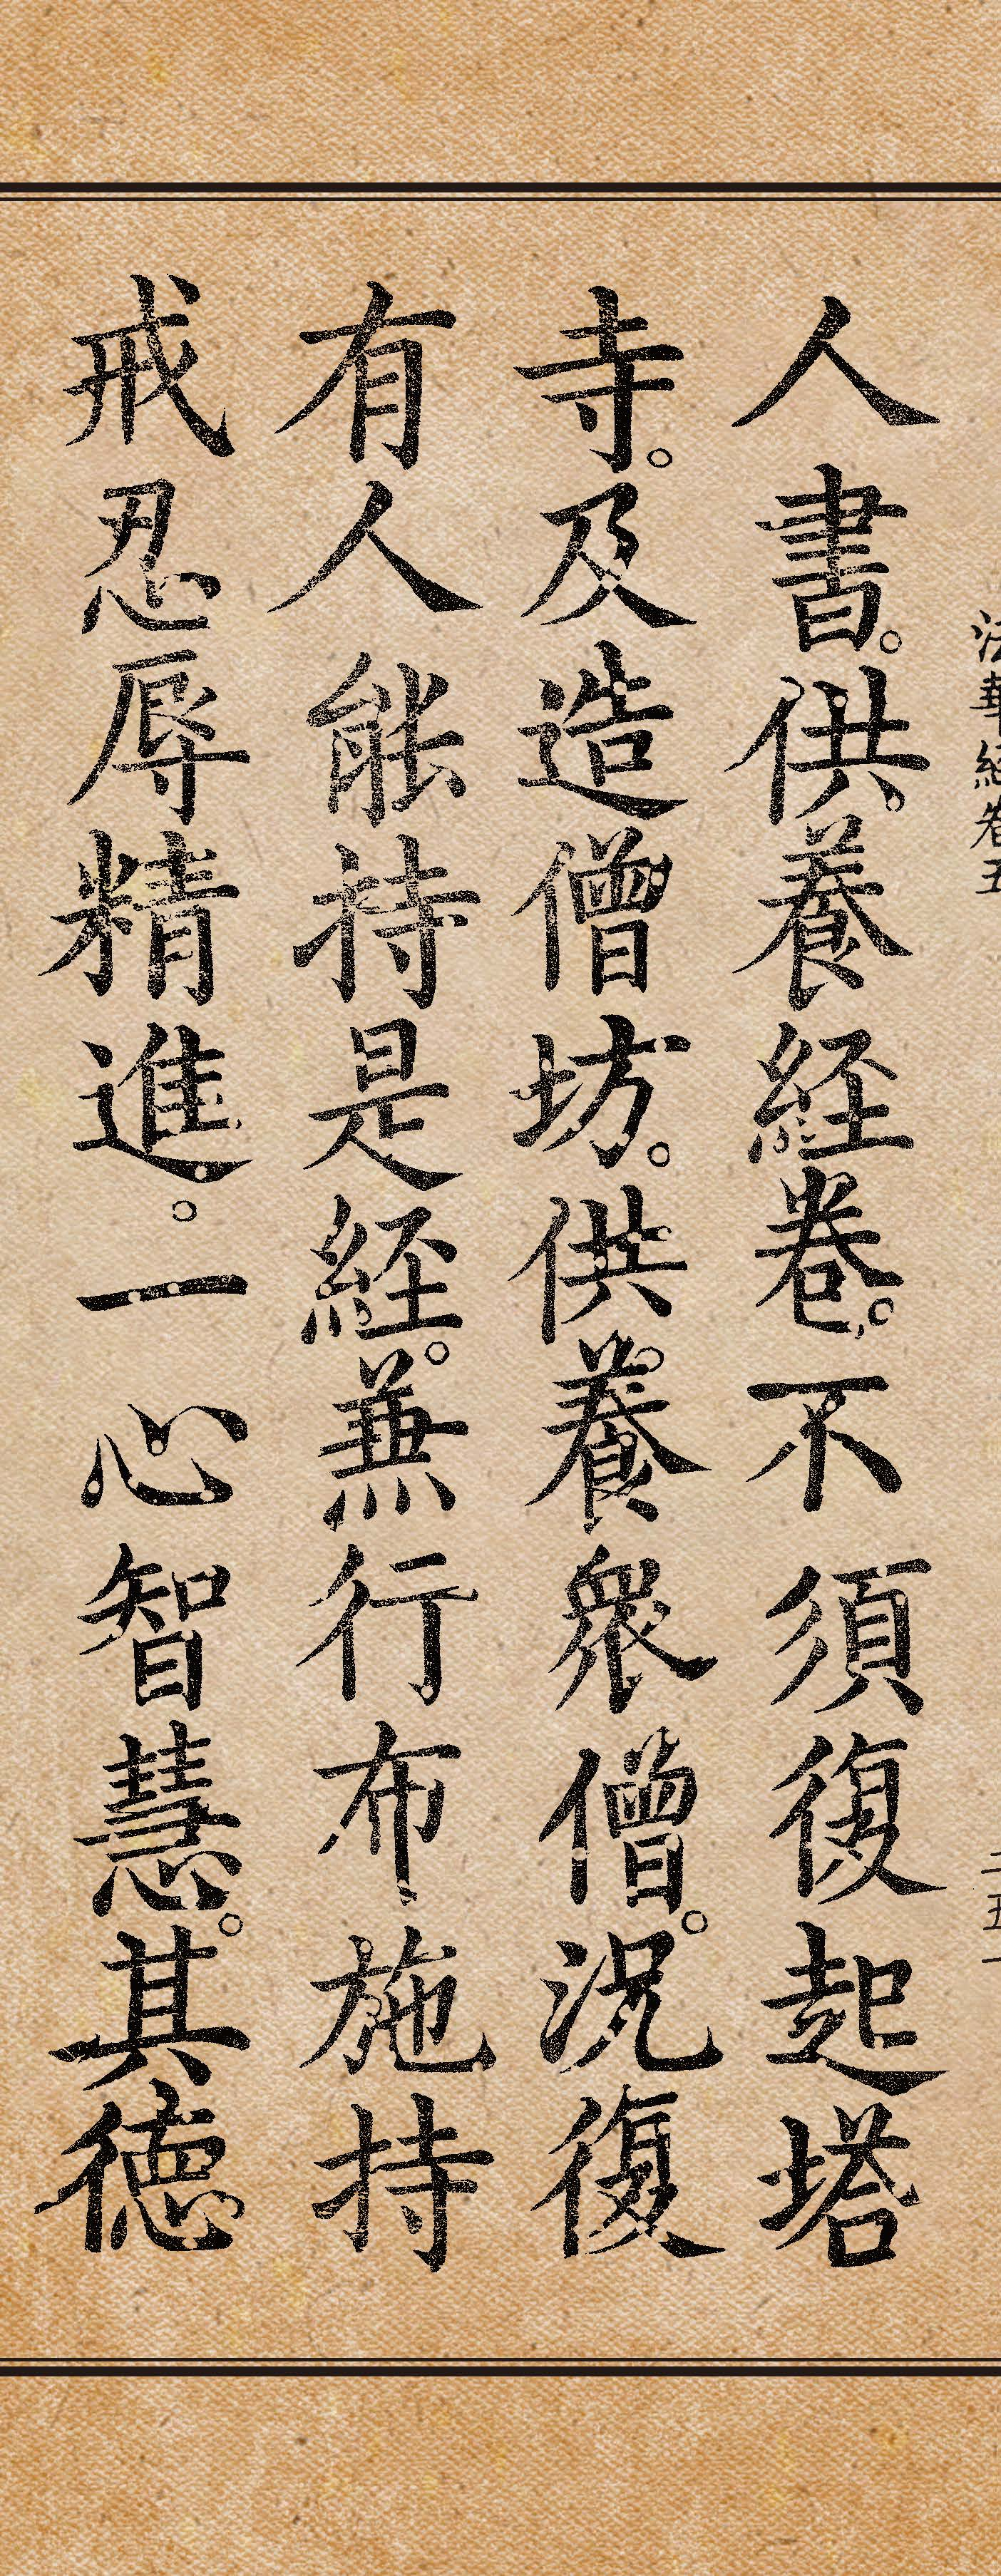 法華経卷五
二五一
人書。供養経卷。不須復起塔
寺。及造僧坊。供養衆僧。況復
有人能持是経。兼行布施持
戒忍辱精進。一心智慧。其徳